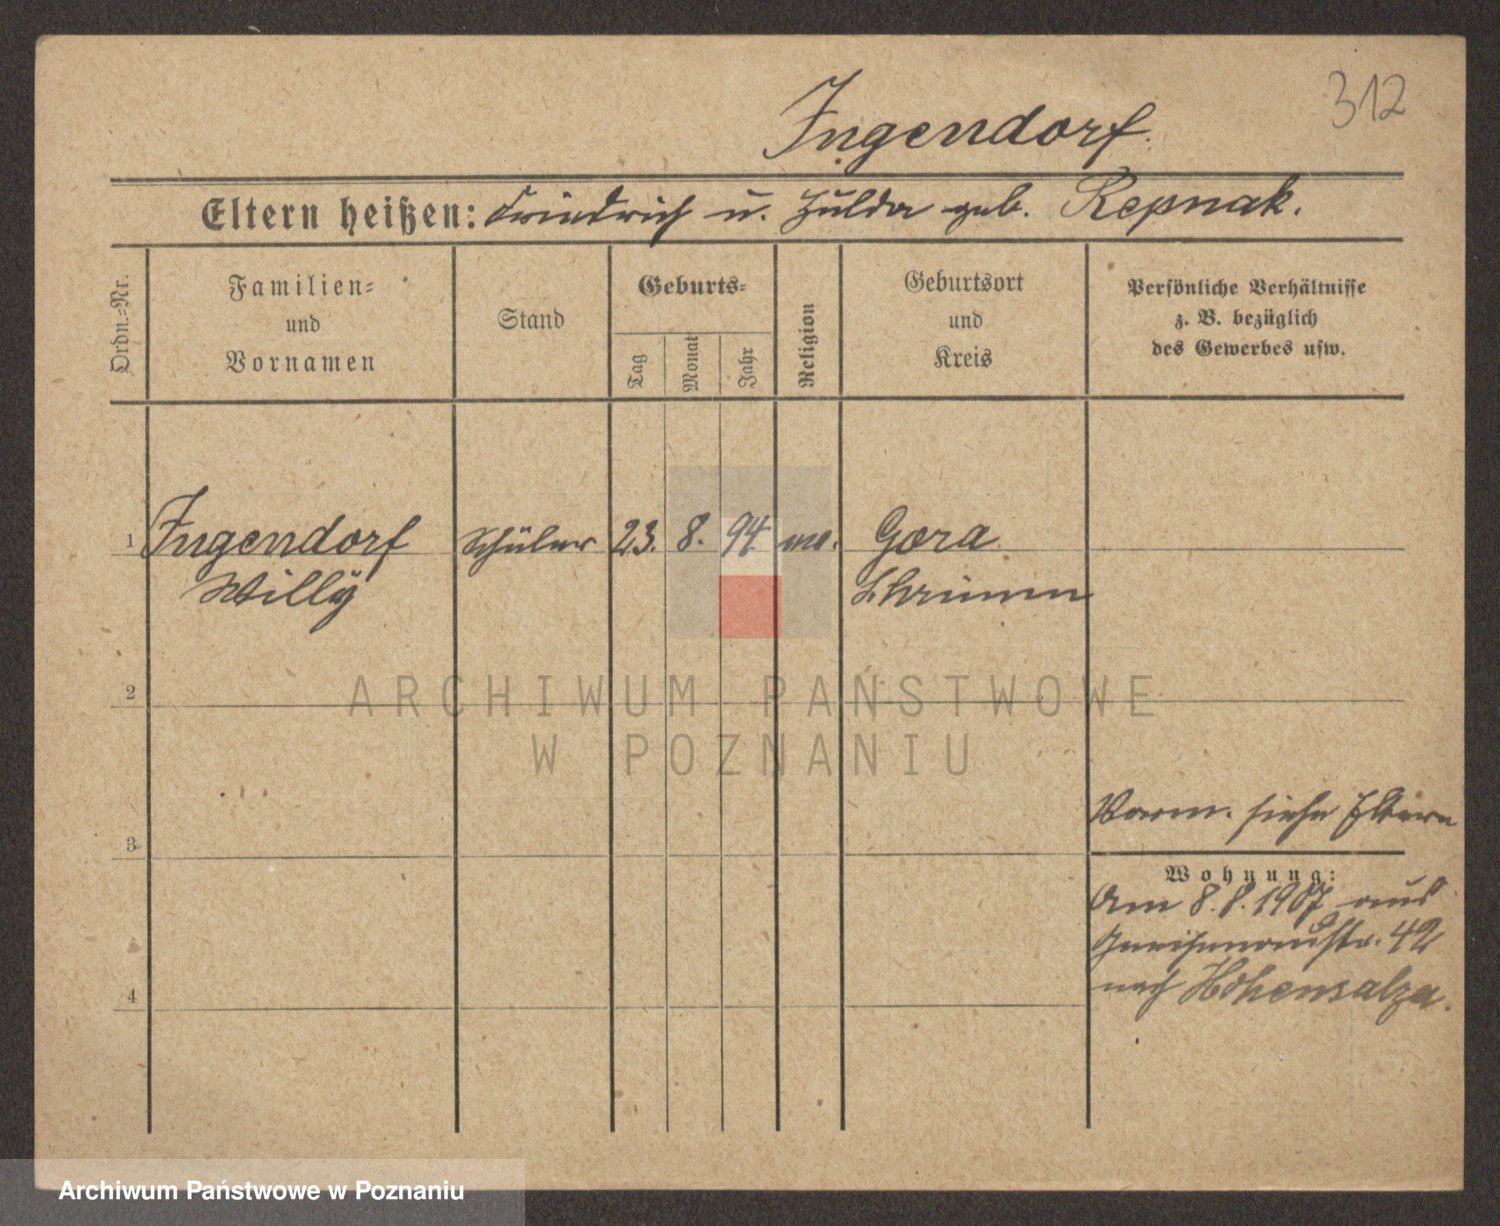 312
Ingendorf.
Eltern heißen: Friedrich u. Hulda geb. Repnak.
Ordn.-Nr.
Familien-
und
Vornamen
Stand
Geburts-
Tag
Monat
Jahr
Religion
Geburtsort
und
Kreis
Persönliche Verhältnisse
z. B. bezüglich
des Gewerbes usw.
1 Ingendorf Schüler 23. 8. 94. ev. Gora
Willy Schrimm
2
ARCHIWUM PAŃSTWOWE
W POZNANIU
3
Verm. siehe Eltern
Wohnung:
Am 8.8.1907 aus
Gneisenaustr. 42
nach Hohensalza.
4
Archiwum Państwowe w Poznaniu